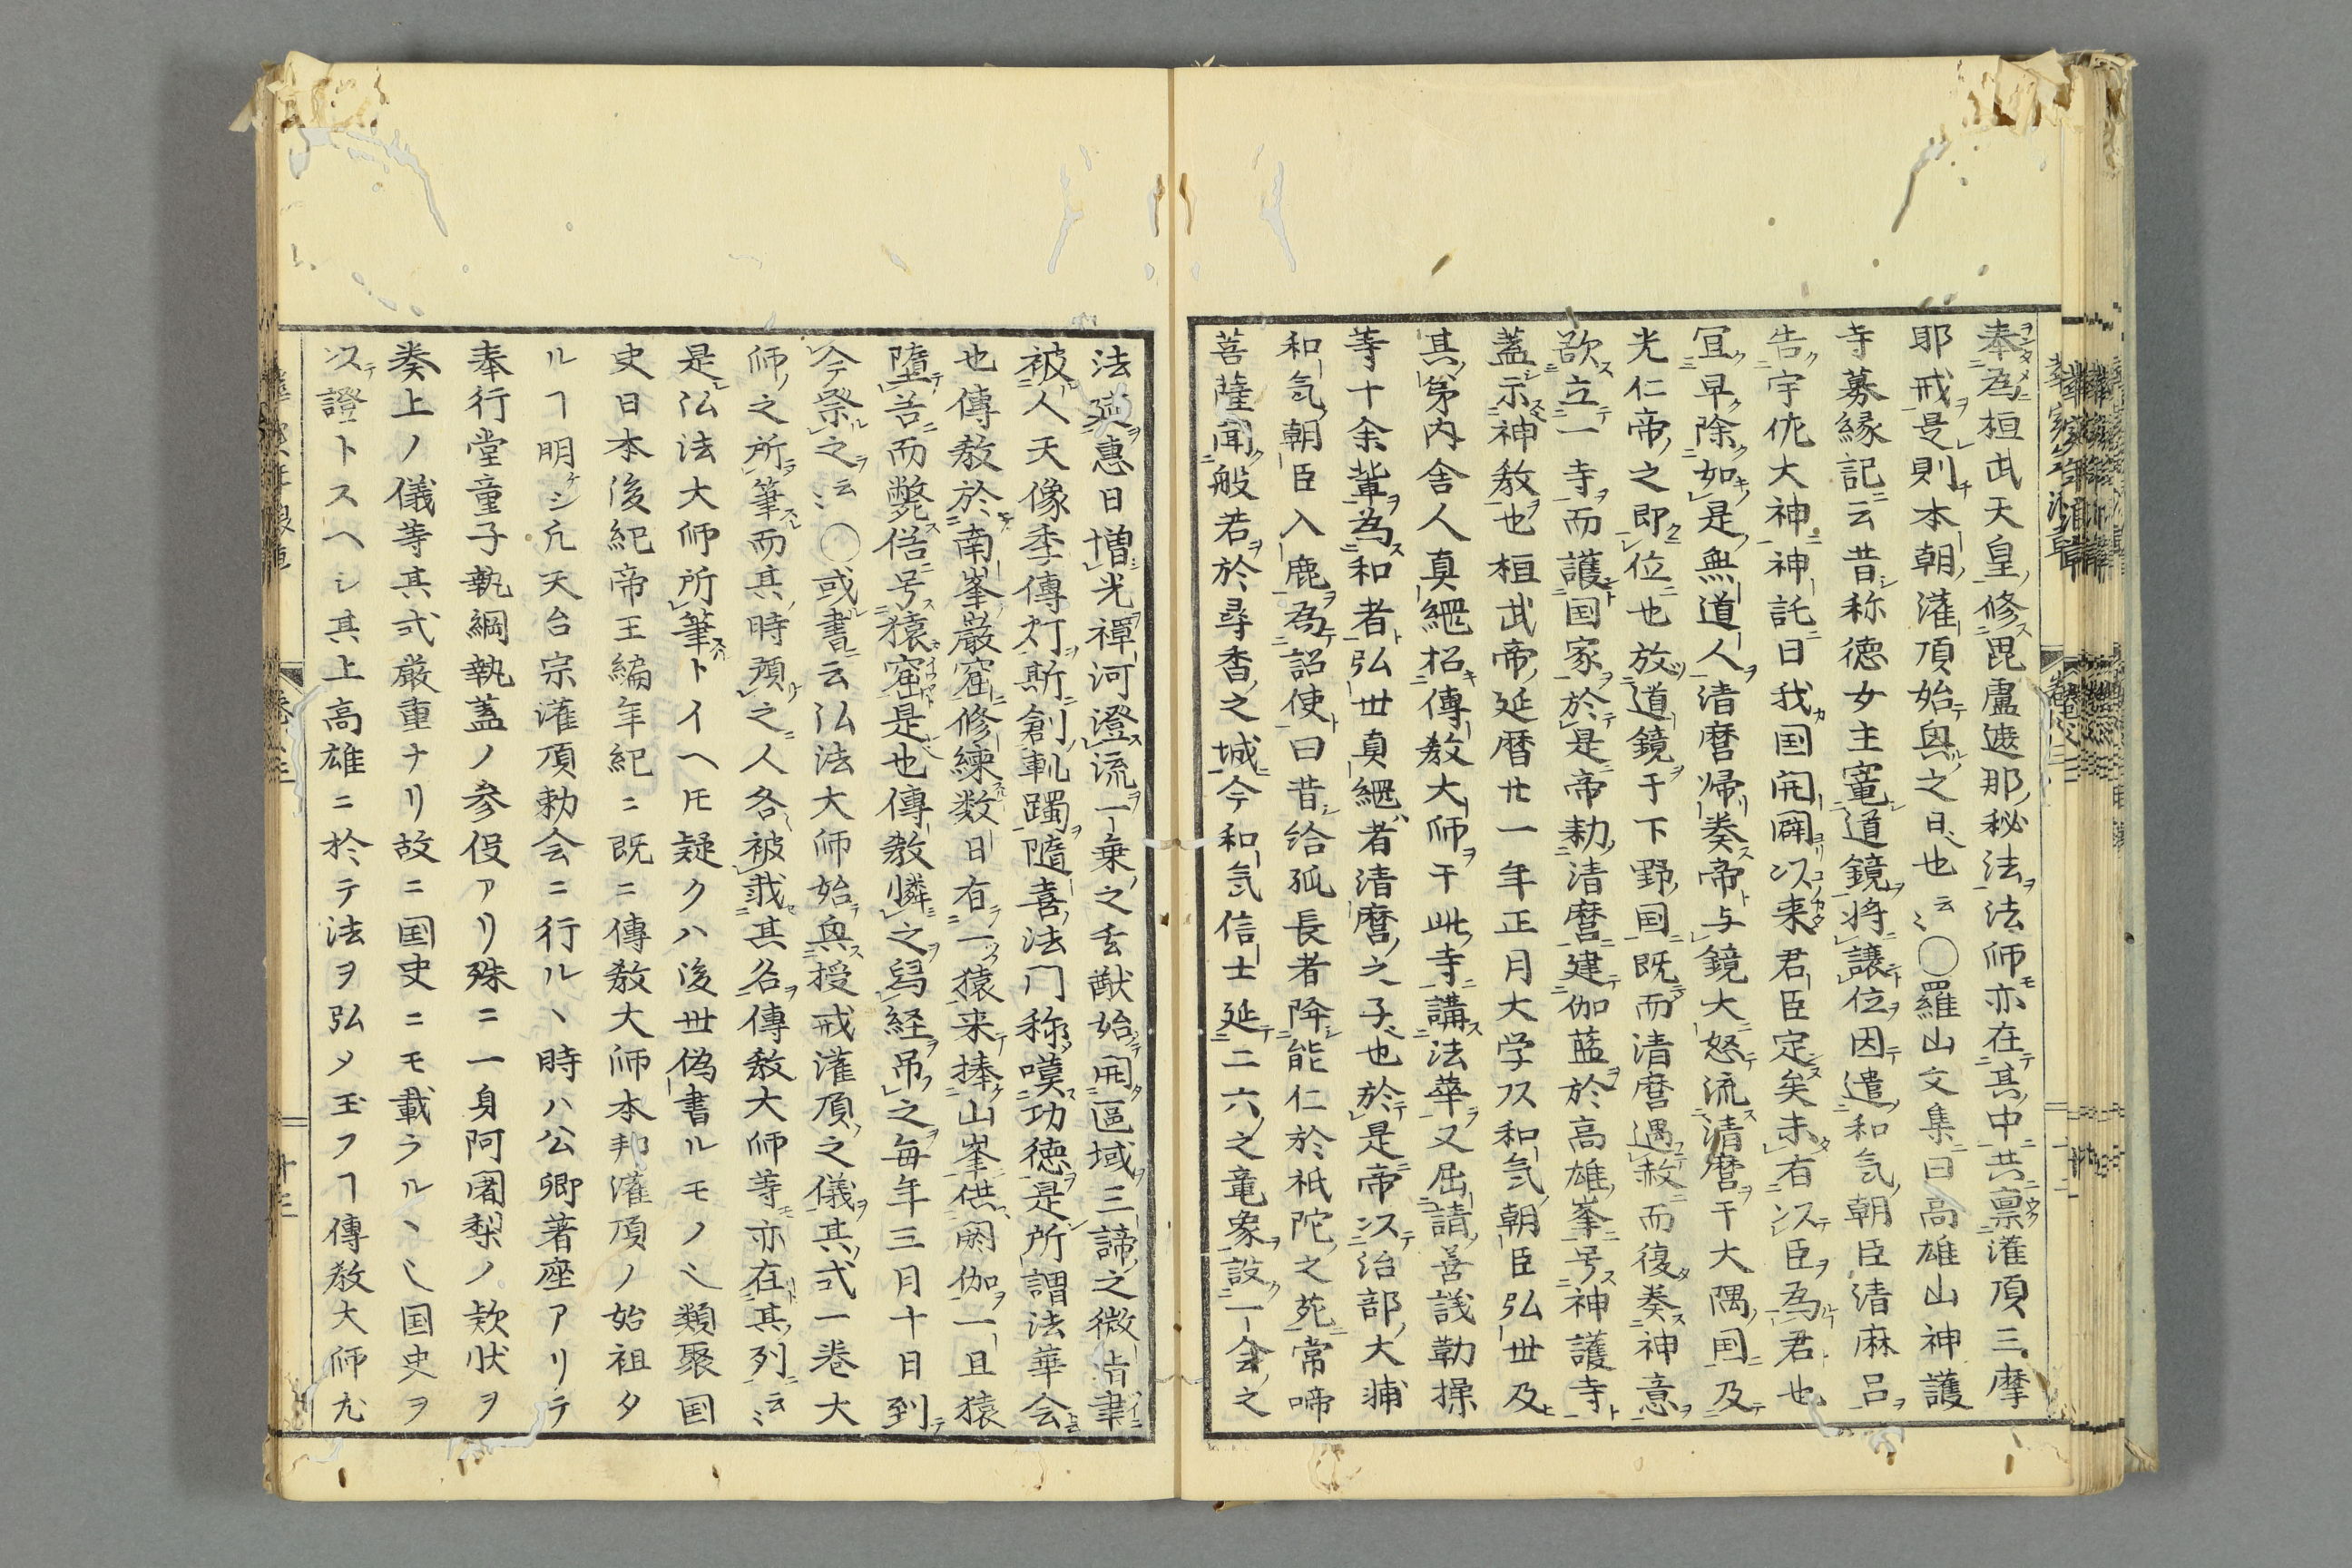 奉為桓武天皇修毘盧遮那秘法法師亦在其中共禀灌頂三摩
耶戒是則本朝灌頂始與之日也云〻〇羅山文集曰高雄山神護
寺募縁記云昔称徳女主寵道鏡将譲位因遣和気朝臣清麻呂
告宇佐大神神託曰我国開闢以来君臣定矣未有以臣為君也
冝早除如是無道人清麿帰奏帝与鏡大怒流清麿于大隅国及
光仁帝之即位也放道鏡于下野国既而清麿遇赦而復奏神意
欲立一寺而護国家於是帝勅清麿建伽藍於高雄峯号神護寺
蓋示神教也桓武帝延暦廿一年正月大学头和気朝臣弘世及
其第内舎人真綱招傳教大師于此寺講法華又屈請善議勤操
等十余輩為和者弘世真綱者清麿之子也於是帝以治部大輔
和気朝臣入鹿為詔使曰昔給孤長者降能仁於祇陀之苑常啼
菩薩聞般若於尋香之城今和気信士延二六之竜象設一会之
法莚惠日増光禪河澄流一乗之玄猷始開區域三諦之微旨聿
被人天像季傳灯斯創軌躅随喜法門称嘆功徳是所謂法華会
也傳教於南峯巌窟修練数日有一猿来捧山峯供閼伽一且猿
墮苦而斃俗号猿窟是也傳教憐之写経吊之毎年三月十日到
今祭之云〻〇或書云弘法大師始與授戒灌頂之儀其式一巻大
師之所筆而其時預之人各被載其名傳教大師等亦在其列云〻
是弘法大師所筆トイヘ𪜈疑クハ後世偽書ルモノ〻類聚国
史日本後紀帝王編年紀ニ既ニ傳教大師本邦灌頂ノ始祖タ
ルヿ明シ凢天台宗灌頂勅会ニ行ルヽ時ハ公卿著座アリテ
奉行堂童子執綱執蓋ノ参役アリ殊ニ一身阿闍梨ノ欵状ヲ
奏上ノ儀等其式厳重ナリ故ニ国史ニモ載ラルヽ〻国史ヲ
以證トスヘシ其上高雄ニ於テ法ヲ弘メ玉フヿ傳教大師尤